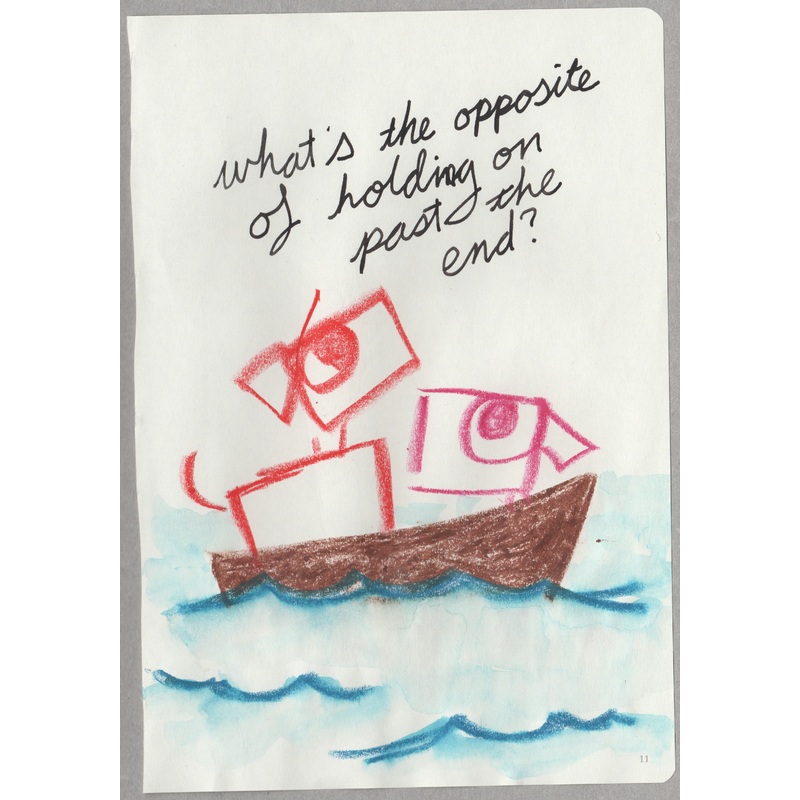 what's the opposite
of holding on
past the
end?
11